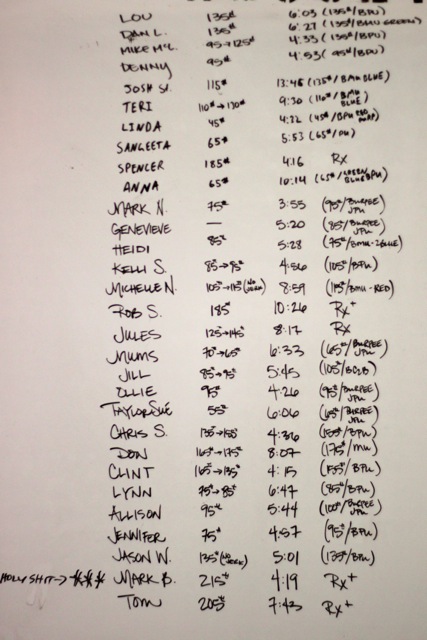 LOU 135# 6:03 (135#/BPU)
DAN L. 135# 6:27 (135#/BMU GREEN)
MIKE MC. 95→125# 4:33 (135#/BPU)
DENNY 95# 4:53 (95#/BPU)
JOSH 115# 13:45 (135#/BMU BLUE)
TERI 110#→130# 9:30 (110#/BMU BLUE)
LINDA 45# 4:22 (45#/BPU RED
SANGEETA 65# 5:53 (65#/PU)
SPENCER 185# 4:16 Rx
ANNA 65# 10:14 (65#/GREEN BLUE BPU)
MARK N. 75# 3:55 (95#/BURPEE JPU)
GENEVIEVE — 5:20 (85#/BURPEE JPU)
HEIDI 85# 5:28 (75#/BMU-2BLUE)
KELLI S. 85#→95# 4:56 (105#/BPU)
MICHELLE N. 105#→115 (NO JERK) 8:59 (115#/BMU-RED)
ROB S. 185# 10:26 Rx+
JULES 125#→145# 8:17 Rx
MUMS 70#→65# 6:33 (65#/BURPEE JPU)
JILL 85#→95# 5:45 (105#/
OLLIE 95# 4:26 (95#/BURPEE JPU)
TAYLOR SUE 55# 6:06 (65#/BURPEE JPU)
CHRIS S. 135#→155# 4:36 (155#/BPU)
DON 165#→175# 8:07 (175#/MU)
CLINT 165#→135# 4:15 (155#/BPU)
LYNN 75#→85# 6:47 (85#/BPU)
ALLISON 95# 5:44 (100#/BURPEE JPU)
JENNIFER 75# 4:57 (95#/BPU)
JASON W. 135# (NO JERK) 5:01 (135#/BPU)
HOLY SHIT → *** MARK B. 215# 4:19 Rx+
TOM 205# 7:43 Rx+